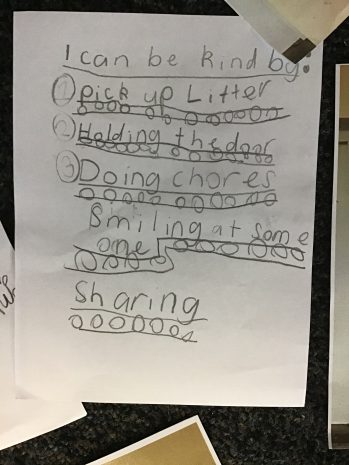 I can be kind by:
① pick up Litter
② Holding the door
③ Doing chores
Smiling at some
one
Sharing